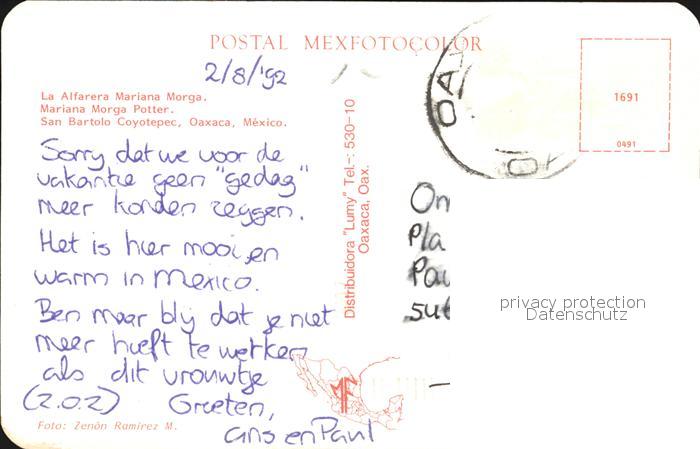 POSTAL MEXFOTOCOLOR
2/8/'92
La Alfarera Mariana Morga.
Mariana Morga Potter.
San Bartolo Coyotepec, Oaxaca, México.
Sorry dat we voor de
vakantie geen "gedag"
meer konden zeggen.
Het is hier mooi en
warm in Mexico.
Ben maar blij dat je niet
meer hieft te werken
als dit vrouwtje
(z.o.z) Groeten,
ans en Paul
Foto: Zenón Ramírez M.
Distribuidora "Lumy" Tel.-: 530-10
Oaxaca, Oax.
MF
OA
1691
0491
On
Pla
Pau
sub
privacy protection
Datenschutz